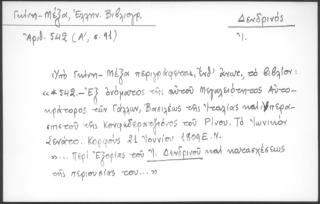 Γκίνη-Μέξα, Ἑλλην. Βιβλιογρ. Δενδρινός
Ἀριθ. 542 (Α', σ. 91) Ἰ.
Ὑπὸ Γκίνη-Μέξα περιγράφεται, ἐνθ' ἄνωτ., τὸ βιβλίον:
«*542.-Ἐξ ὀνόματος τῆς αὐτοῦ Μεγαλειότητος Αὐτο-
κράτορος τῶν Γάλλων, Βασιλέως τῆς Ἰταλίας καὶ Ὑπερα-
σπιστοῦ τῆς Κονφεδερατζιόνος τοῦ Ρίνου. Τὸ Ἰωνικὸν
Σενάτο. Κορφοὺς 21 Ἰουνίου 1809 Ε.Ν.
»... Περὶ Ἐξορίας τοῦ Ἰ. Δενδρινοῦ καὶ κατασχέσεως
τῆς περιουσίας του...»